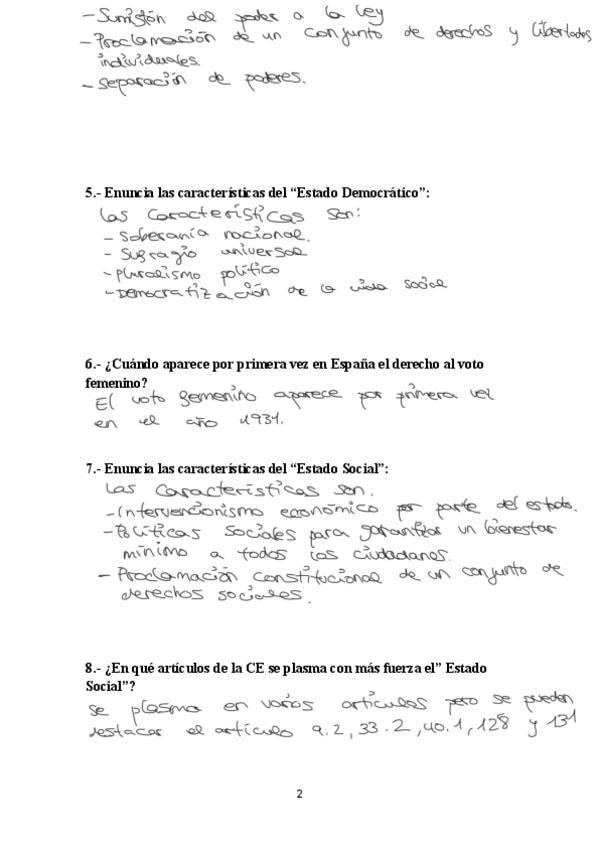 - Sumisión del poder a la ley
- Proclamación de un conjunto de derechos y libertades
individuales.
- separación de poderes.
5.- Enuncia las características del “Estado Democrático”:
Las características son:
- Soberanía nacional.
- Sufragio universal
- pluralismo político
- Democratización de la vida social
6.- ¿Cuándo aparece por primera vez en España el derecho al voto
femenino?
El voto femenino aparece por primera vez
en el año 1931.
7.- Enuncia las características del “Estado Social”:
Las características son.
- Intervencionismo económico por parte del estado.
- Políticas sociales para garantizar un bienestar
mínimo a todos los ciudadanos.
- Proclamación constitucional de un conjunto de
derechos sociales.
8.- ¿En qué artículos de la CE se plasma con más fuerza el” Estado
Social”?
se plasma en varios artículos pero se pueden
destacar el artículo 9.2, 33.2, 40.1, 128 y 131
2